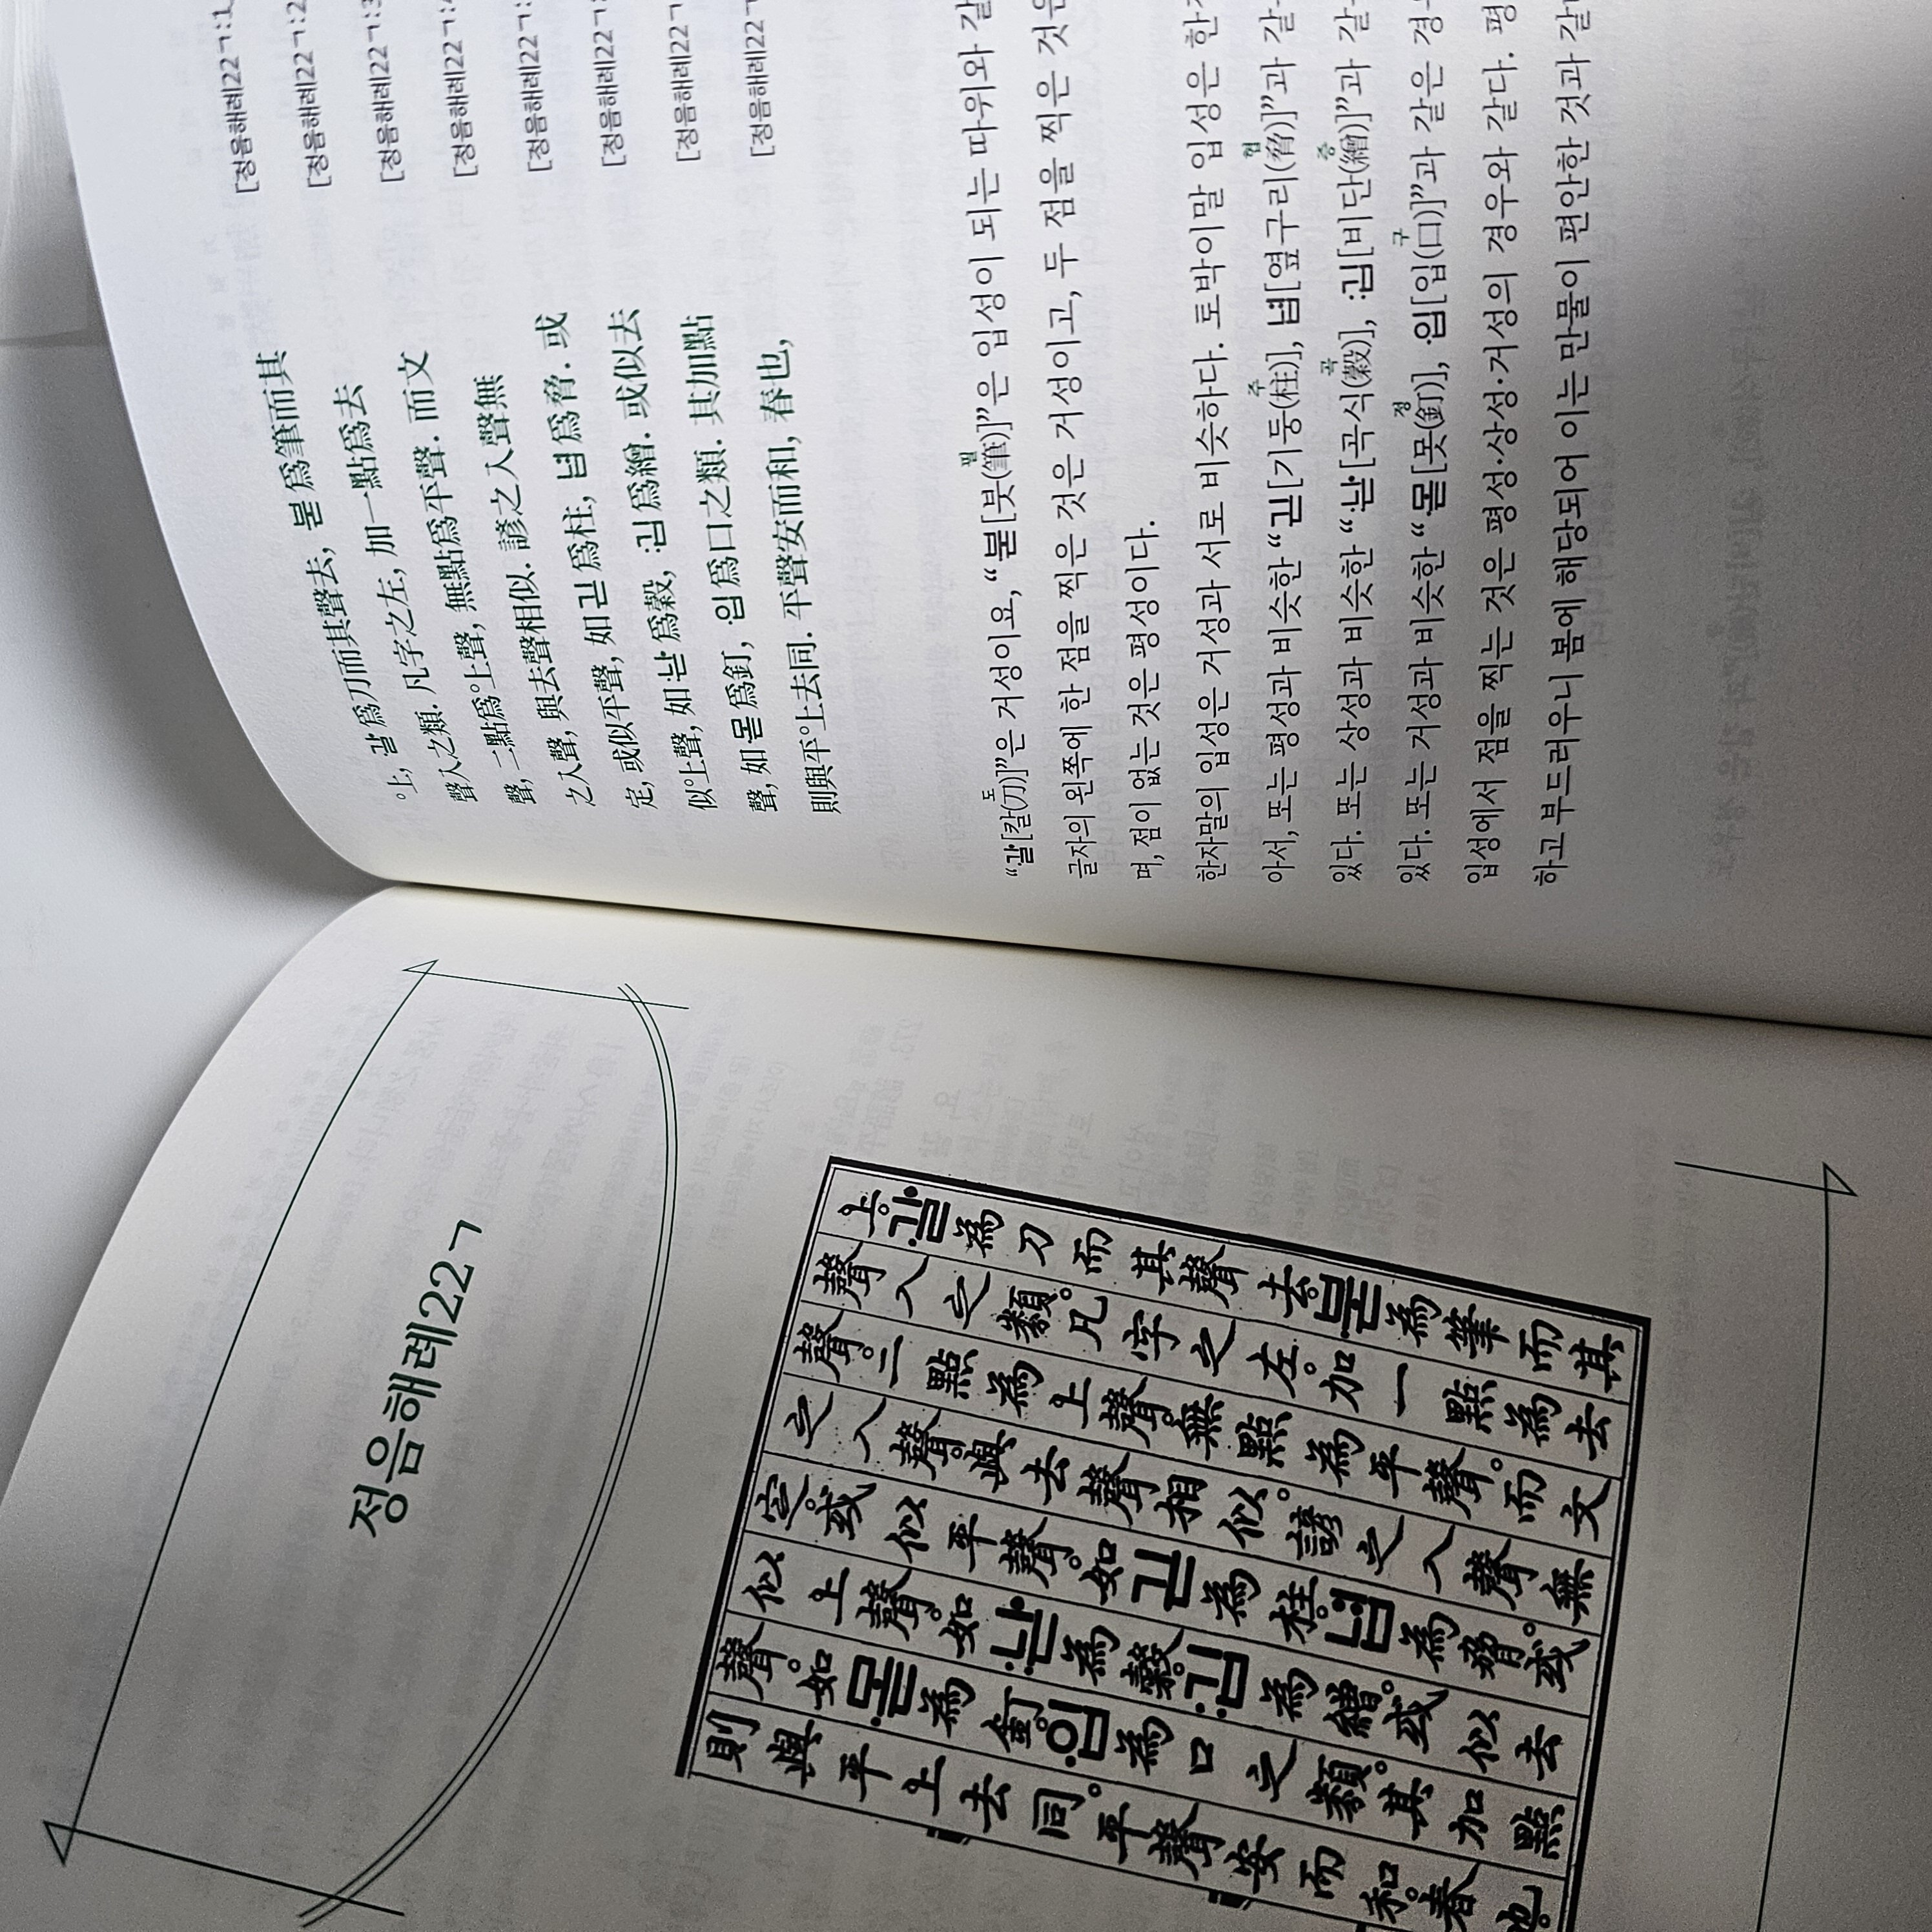 정음해례22ㄱ
上·갈為刀而其聲去붇為筆而其
聲入之類。凡字之左。加一點為去
聲。二點為上聲。無點為平聲。而文
之入聲。與去聲相似。諺之入聲無
定。或似平聲。如긷為柱。녑為脅。或
似上聲。如:낟為穀。:깁為繒。或似去
聲。如·몯為釘。·입為口之類。其加點
則與平上去同。平聲安而和。春也。
°上, ·갈爲刀而其聲去, ·붇爲筆而其 [정음해례22ㄱ:1
聲入之類. 凡字之左, 加一點爲去 [정음해례22ㄱ:2
聲, 二點爲°上聲, 無點爲平聲. 而文 [정음해례22ㄱ:3
之入聲, 與去聲相似. 諺之入聲無 [정음해례22ㄱ:
定, 或似平聲, 如긷爲柱, 녑爲脅. 或 [정음해례22ㄱ:
似°上聲, 如:낟爲穀, :깁爲繒. 或似去 [정음해례22ㄱ:
聲, 如·몯爲釘, ·입爲口之類. 其加點 [정음해례22ㄱ
則與平°上去同. 平聲安而和, 春也, [정음해례22ㄱ
“·갈[칼(刀도)]”은 거성이요, “·붇[붓(筆필)]”은 입성이 되는 따위와 갈
글자의 왼쪽에 한 점을 찍은 것은 거성이고, 두 점을 찍은 것은
며, 점이 없는 것은 평성이다.
한자말의 입성은 거성과 서로 비슷하다. 토박이말 입성은 한
아서, 또는 평성과 비슷한 “긷[기둥(柱주)], 녑[옆구리(脅협)]”과 같
있다. 또는 상성과 비슷한 “:낟[곡식(穀곡)], :깁[비단(繒증)]”과 같
있다. 또는 거성과 비슷한 “·몯[못(釘정)], ·입[입(口구)]”과 같은 경
입성에서 점을 찍는 것은 평성·상성·거성의 경우와 같다. 평
하고 부드러우니 봄에 해당되어 이는 만물이 편안한 것과 같